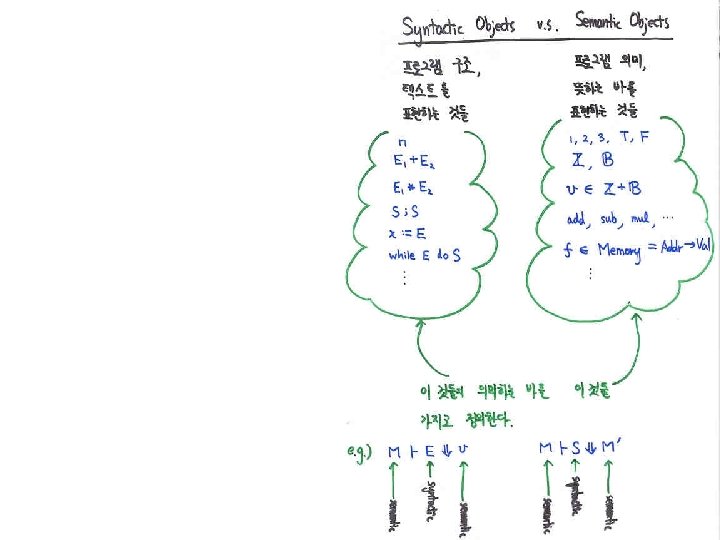 Syntactic Objects v.s. Semantic Objects
프로그램 구조,
텍스트를
표현하는 것들
n
E₁+E₂
E₁*E₂
S;S
x := E
while E do S
⋮
프로그램 의미,
뜻하는 바를
표현하는 것들
1, 2, 3, T, F
ℤ, 𝔹
v ∈ ℤ+𝔹
add, sub, mul, ⋯
f ∈ Memory = Addr→Val
⋮
이 것들의 의미하는 바를 이 것들
가지고 정의한다.
e.g.) M ⊢ E ⇓ v M ⊢ S ⇓ M′
semantic syntactic semantic semantic syntactic semantic